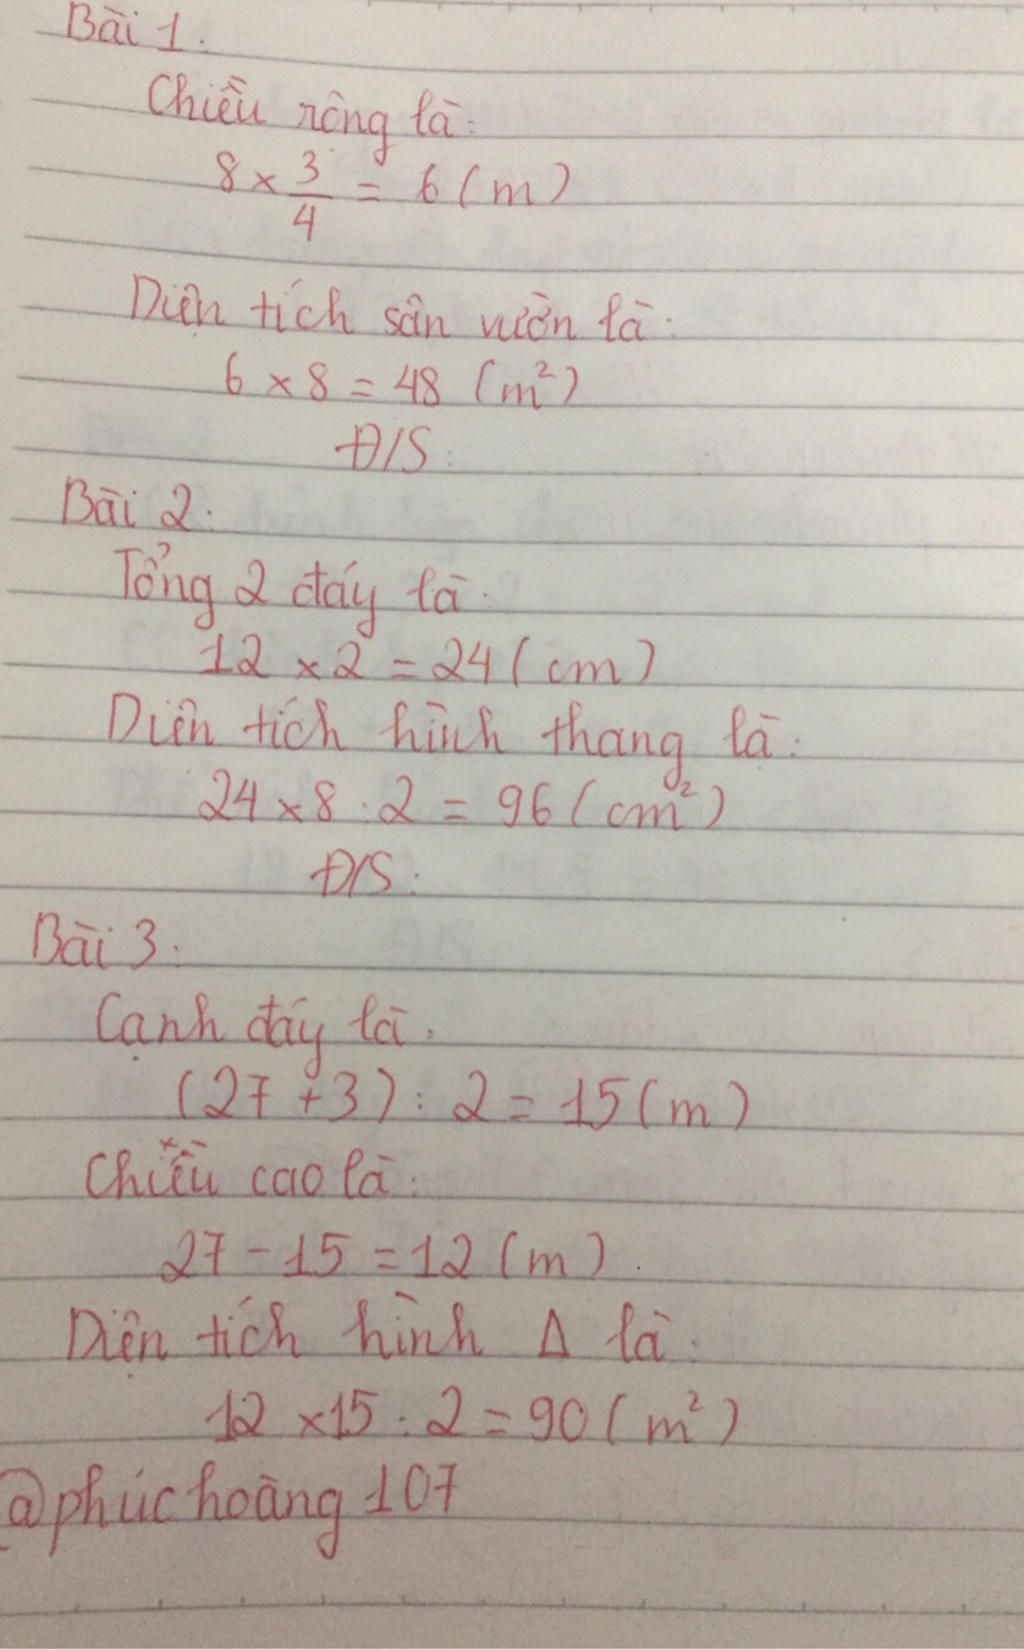 Bài 1.
Chiều rộng là:
8 × 3/4 = 6 (m)
Diện tích sân vườn là:
6 × 8 = 48 (m²)
Đ/S:
Bài 2:
Tổng 2 đáy là:
12 × 2 = 24 (cm)
Diện tích hình thang là:
24 × 8 : 2 = 96 (cm²)
Đ/S:
Bài 3:
Cạnh đáy là:
(27 + 3) : 2 = 15 (m)
Chiều cao là:
27 - 15 = 12 (m).
Diện tích hình Δ là:
12 × 15 : 2 = 90 (m²)
@phúchoàng107